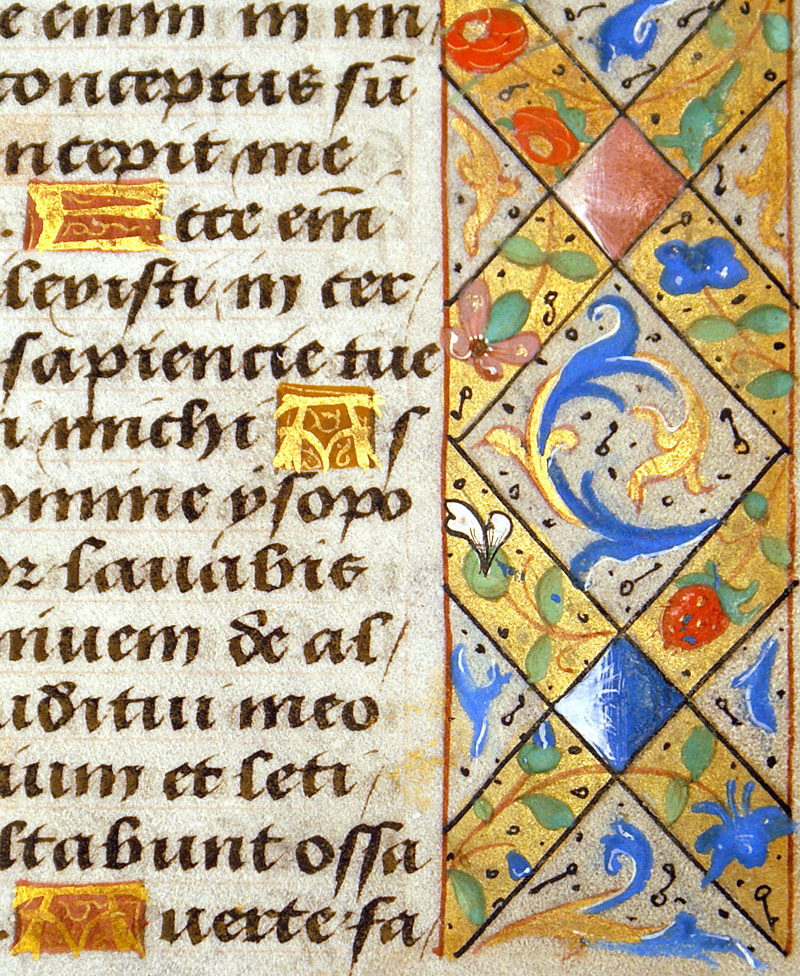 e enim in ini/
conceptus sū
ncepit me
. Ecce em̄
levisti in cer/
sapiencie tue
i michi As
omine ẏsopo
or lavabis
nivem de al/
uditui meo
dium et leti
ltabunt ossa
. Averte fa/